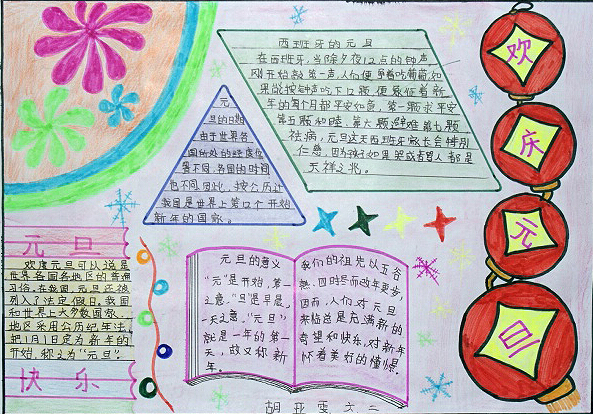 西班牙的元旦
在西班牙,当除夕夜12点的钟声
刚开始敲第一声,人们便争着吃葡萄,如
果能按钟声吃下12颗,便象征着新
年的每个月都平安如意。第一颗求平安
第五颗和睦,第六颗避难,第七颗
祛病,元旦这天西班牙家长会特别
仁慈,因为孩子如果哭或者骂人都是
不祥之兆。
元
旦的日期
由于世界各
国所处的经度位
置不同,各国的时间
也不同,因此,按公历计
我国是世界上第12个开始
新年的国家。
欢
庆
元
旦
元旦
欢度元旦可以说是
世界各国各地区的普遍
习俗。在我国,元旦还被
列入了法定假日。我国
和世界上大多数国家、
地区采用公历纪年法,
把1月1日定为新年的
开始,称之为“元旦”。
快乐
元旦的意义
“元”是开始,第一
之意,“旦”是早晨,
一天之意,“元旦”,
就是一年的第一
天,故又称新
年。
我们的祖先以五谷
熟,四时气而成年更岁,
因而,人们对元旦
来临总是充满新的
希望和快乐,对新年
怀着美好的憧憬。
胡亚雯 六二